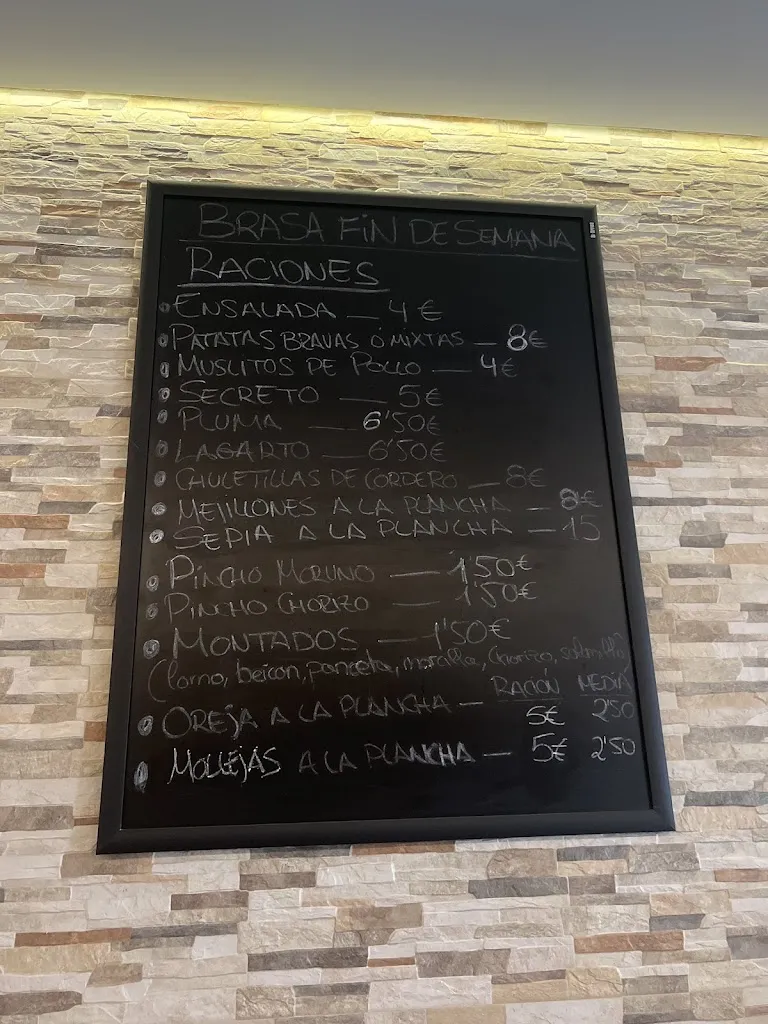 BRASA FIN DE SEMANA
RACIONES
ENSALADA — 4 €
PATATAS BRAVAS Ó MIXTAS — 8€
MUSLITOS DE POLLO — 4€
SECRETO — 5€
PLUMA — 6'50€
LAGARTO — 6'50€
CHULETILLAS DE CORDERO — 8€
MEJILLONES A LA PLANCHA — 8€
SEPIA A LA PLANCHA — 15
PINCHO MORUNO — 1'50€
PINCHO CHORIZO — 1'50€
MONTADOS — 1'50€
(Lomo, beicon, panceta, morcilla, chorizo,
RACIÓN MEDIA
OREJA A LA PLANCHA — 5€ 2'50
MOLLEJAS A LA PLANCHA — 5€ 2'50